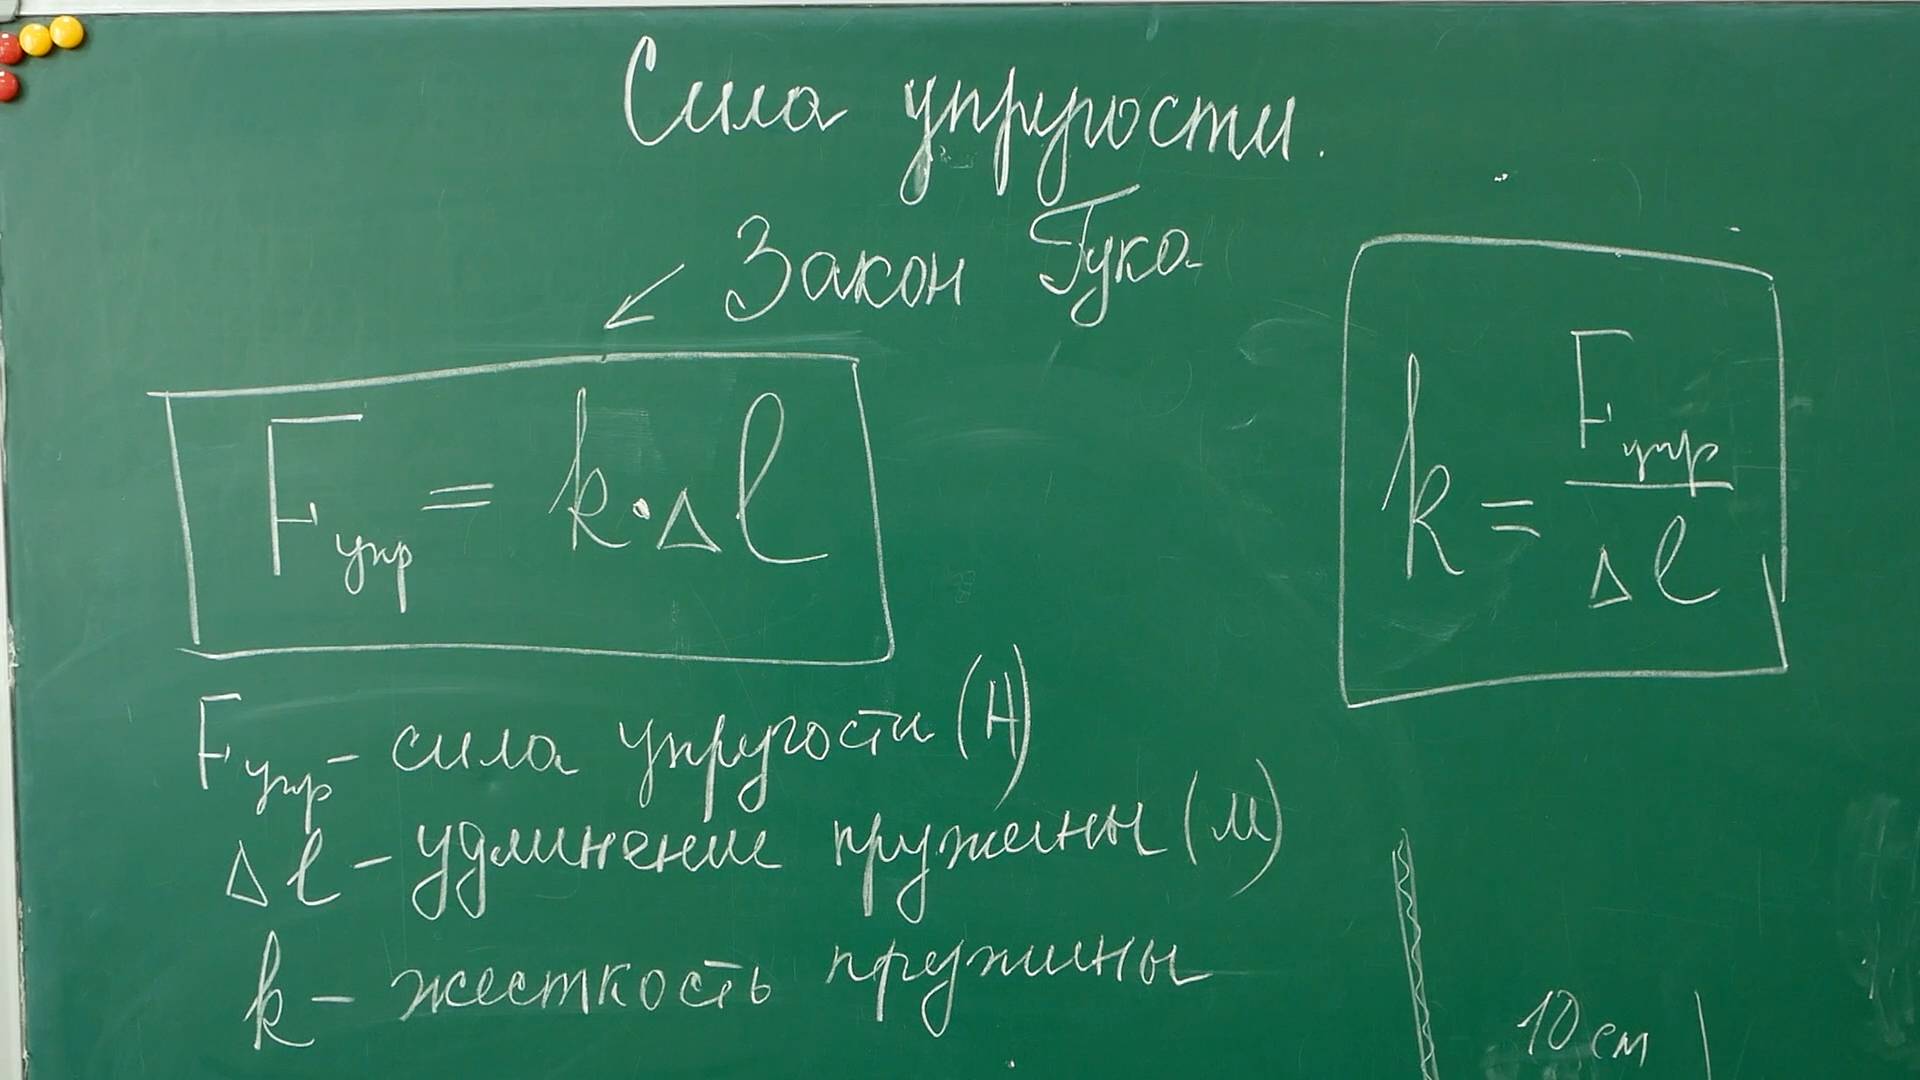 Сила упругости.
Закон Гука
Fупр = k·Δl
k = Fупр / Δl
Fупр - сила упругости (Н)
Δl - удлинение пружины (м)
k - жесткость пружины
10 см